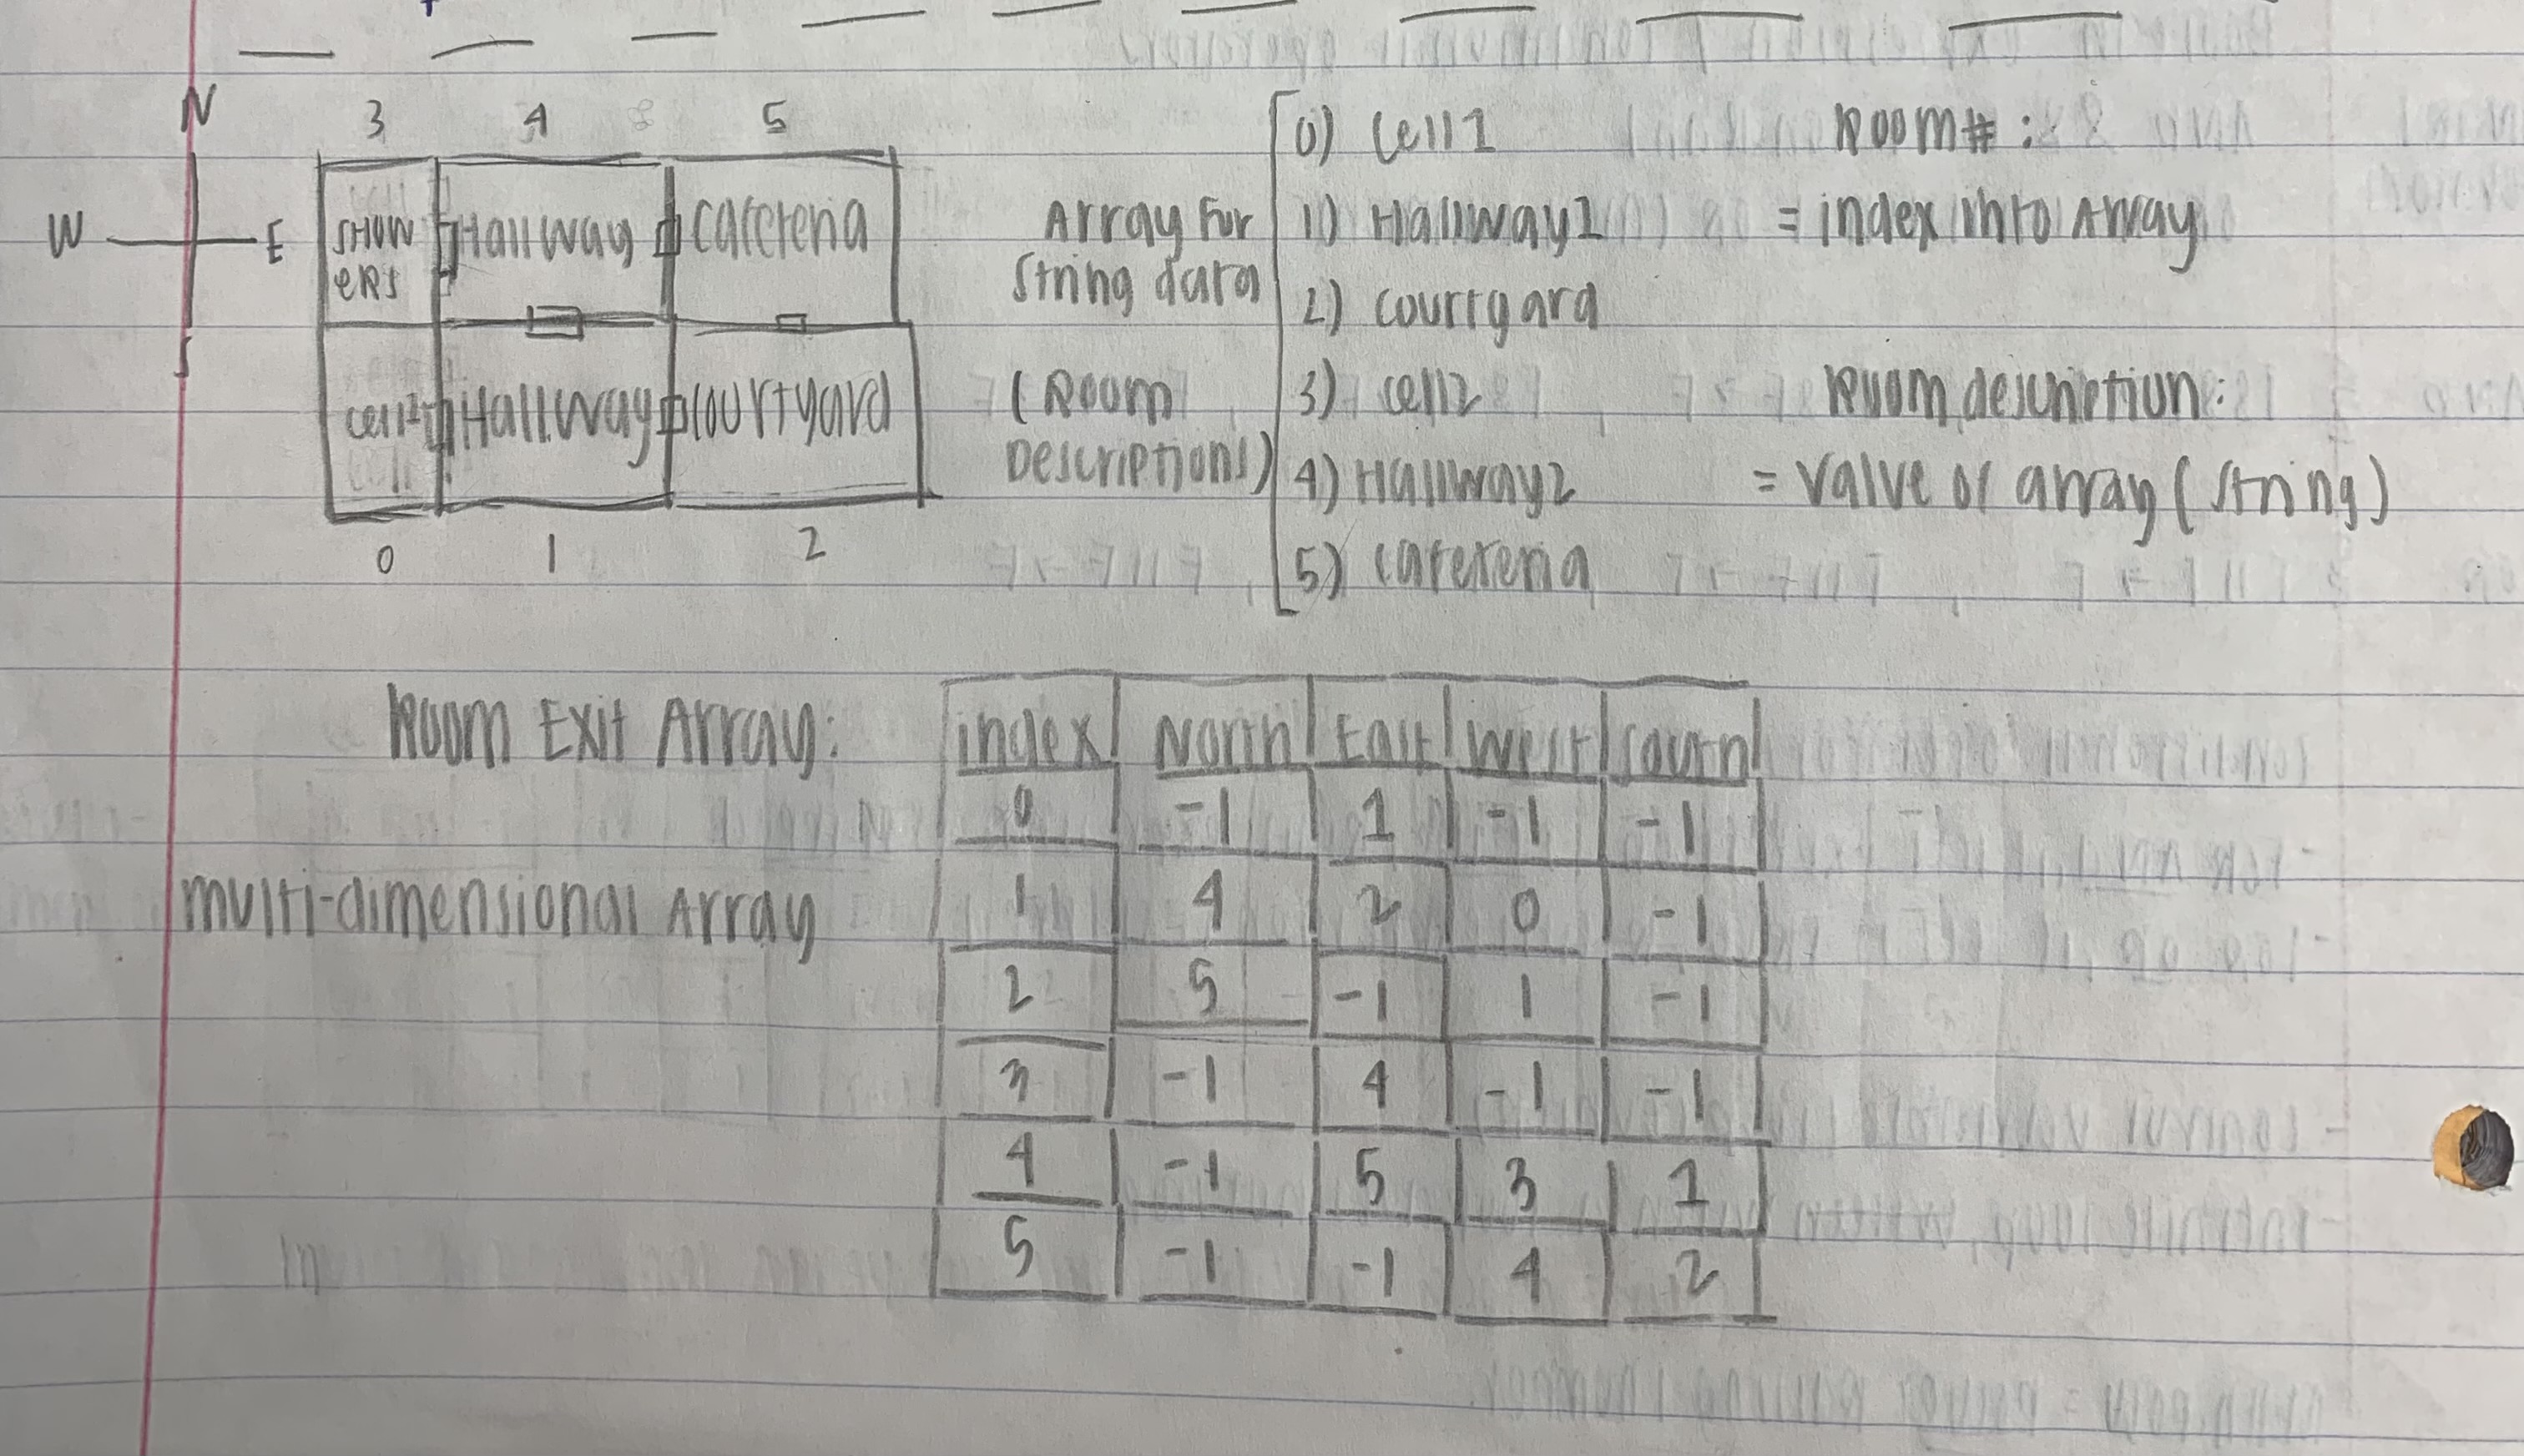 N
W E
S
3 4 5
SHOW Hallway Cafeteria
ERS
Hallway Courtyard
0 1 2
Array For
String data
(Room
Descriptions)
0) Cell1
1) Hallway1
2) Courtyard
3) Cell2
4) Hallway2
5) Cafeteria
Room# :
= index into Array
Room description:
= Value of array (String)
Room Exit Array:
multi-dimensional Array
index North East West South
0 -1 1 -1 -1
1 4 2 0 -1
2 5 -1 1 -1
3 -1 4 -1 -1
4 -1 5 3 1
5 -1 -1 4 2